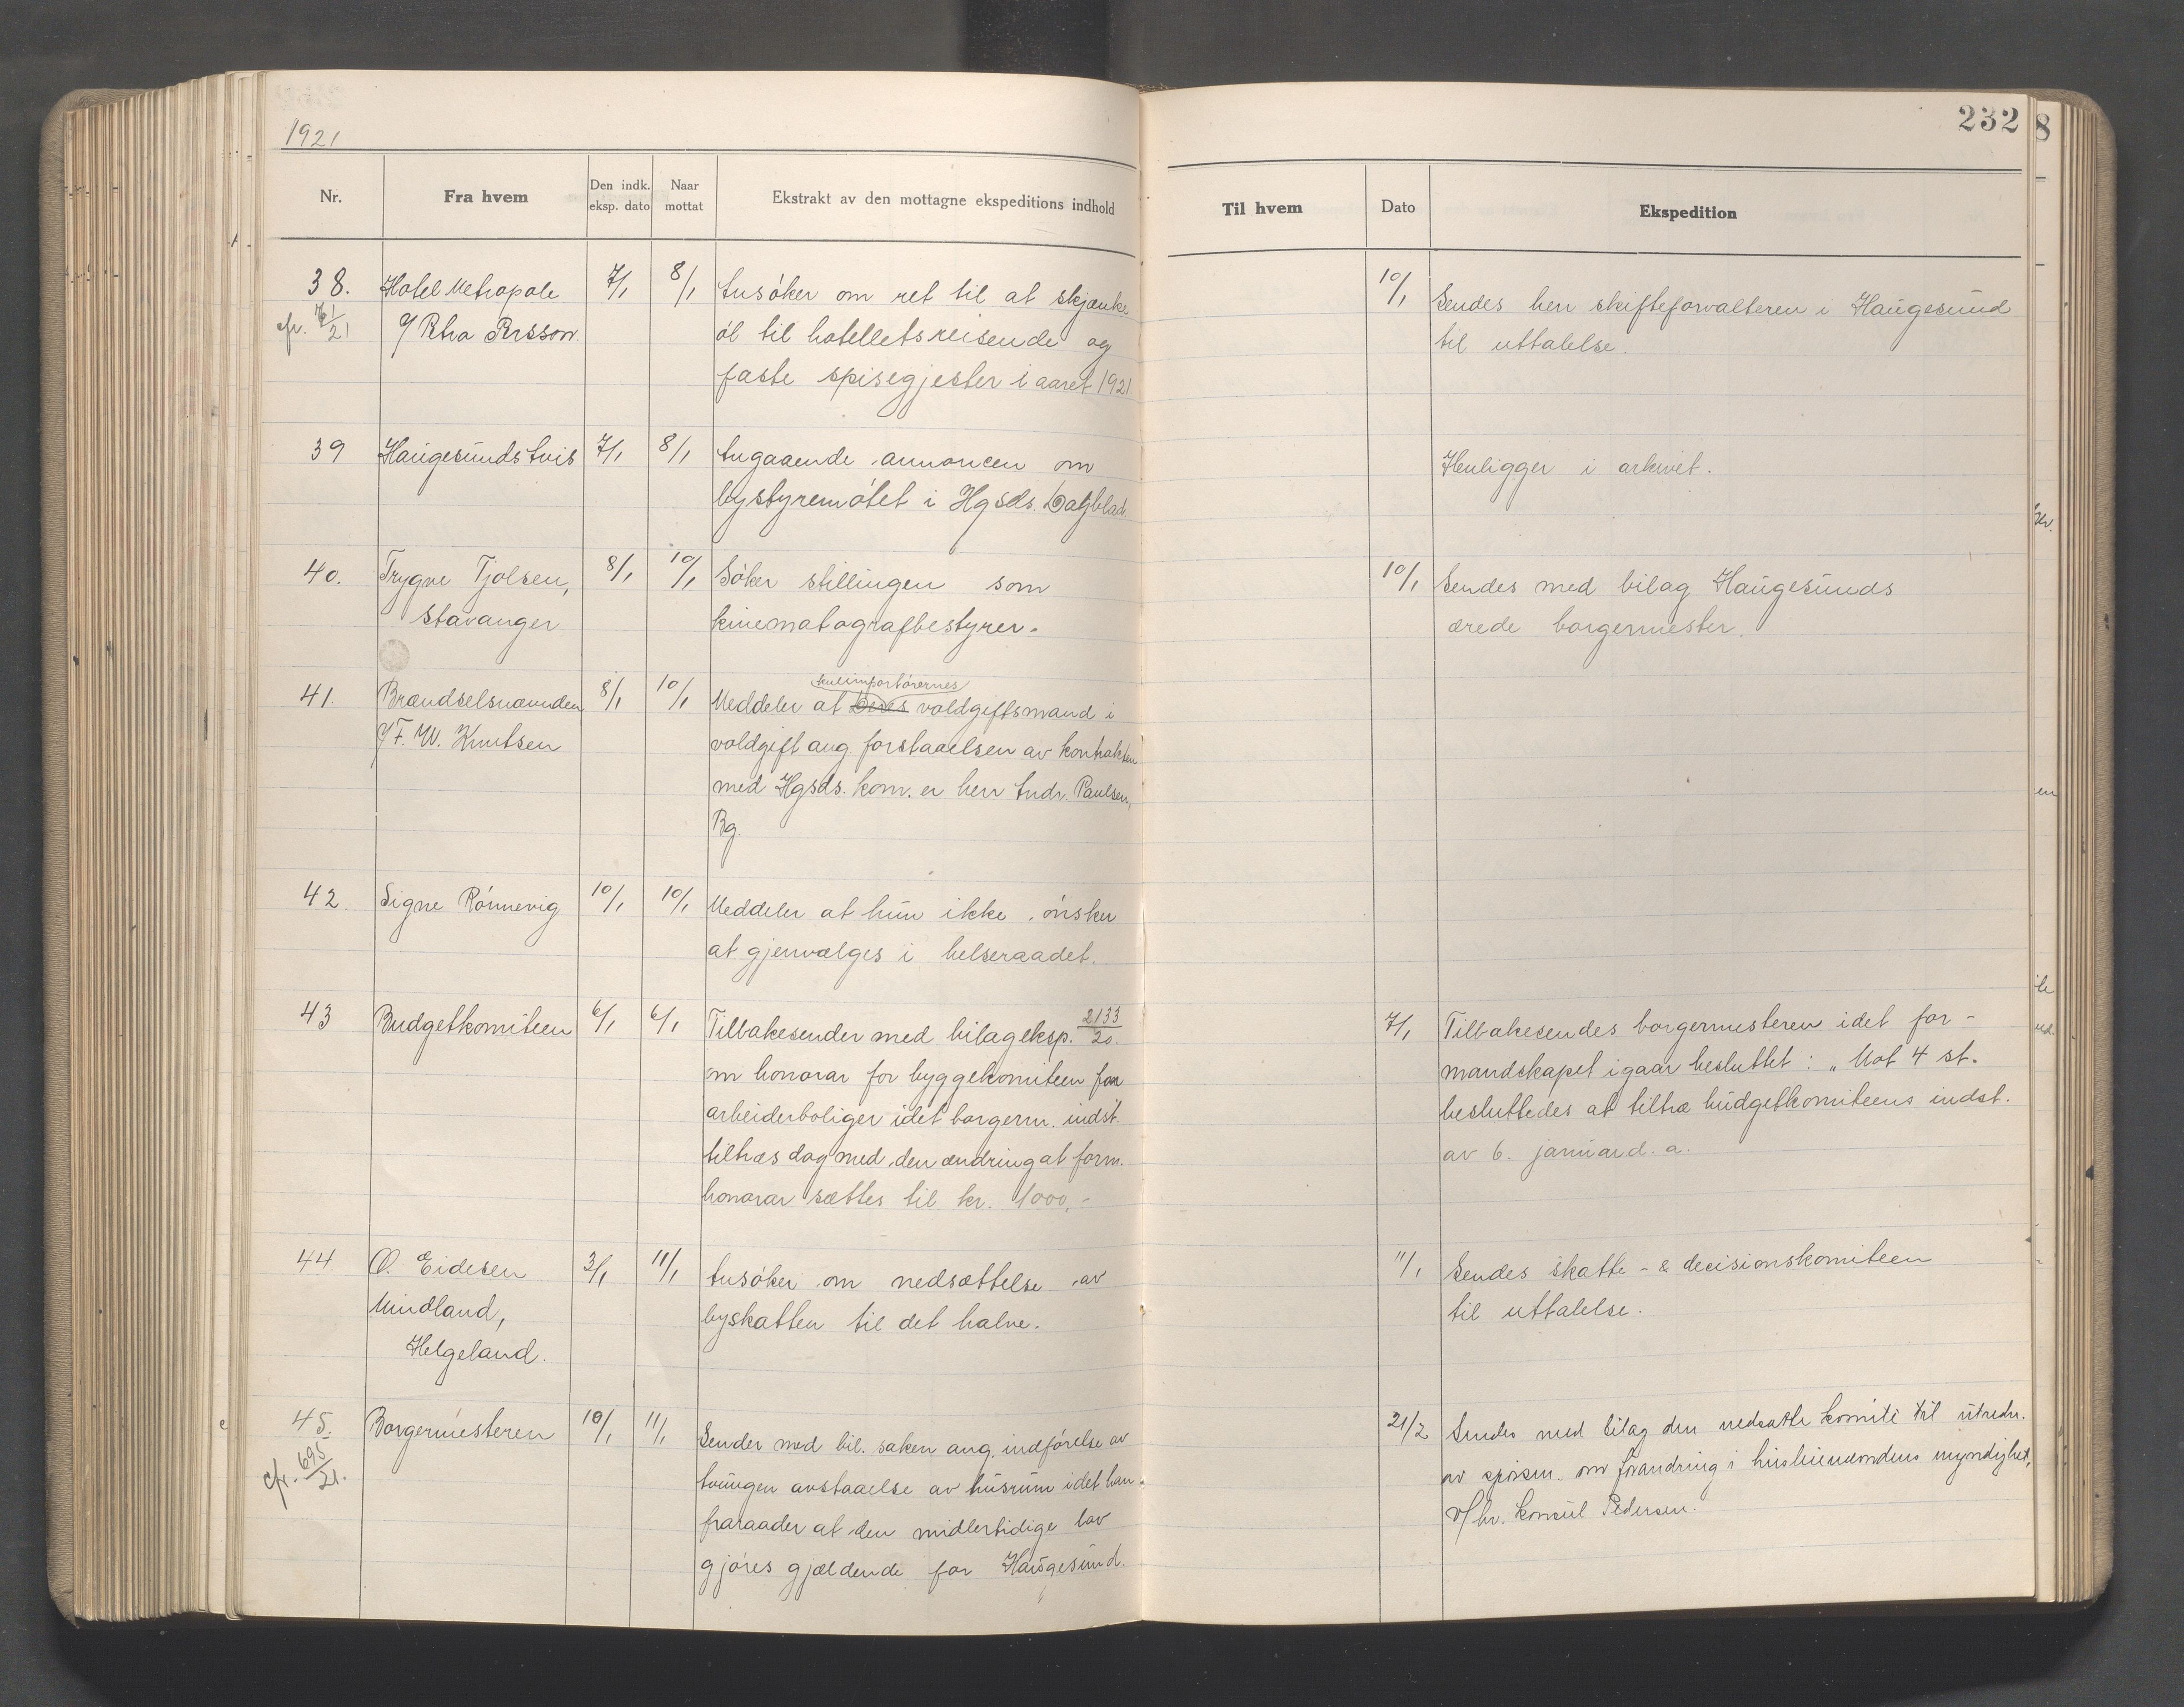 1921
232
8
Nr.
Fra hvem
Den indk. eksp. dato
Naar mottat
Ekstrakt av den mottagne ekspeditions indhold
Til hvem
Dato
Ekspedition
38. Hotel Metropole 7/1 8/1 Ansöker om ret til at skjænke
cfr. /21 v/ Petra Persson. öl til hotellets reisende og
faste spisegjester i aaret 1921
10/1 Sendes herr skifteforvalteren i Haugesund
til uttalelse.
39 Haugesunds Avis 7/1 8/1 Angaaende annoncen om
bystyremötet i Hgsds. Dagblad.
Henligger i arkivet.
40. Trygve Tjølsen, 8/1 10/1 Söker stillingen som
Stavanger kinematografbestyrer.
10/1 Sendes med bilag Haugesunds
ærede borgermester.
kulimportörernes
41. Brændselsnævnden 8/1 10/1 Meddeler at deres voldgiftsmand i
v/ F. W. Knutsen voldgift ang. forstaaelsen av kontrakten
med Hgsds. kom. er herr Andr. Paulsen,
Bg.
42. Signe Rönnevig 10/1 10/1 Meddeler at hun ikke önsker
at gjenvælges i helseraadet.
43 Budgetkomiteen 6/1 6/1 Tilbakesender med bilag eksp. 2133/20.
om honorar for byggekomiteen for
arbeiderboliger idet borgerm. indst.
tiltræs dog med den ændring at form.
honorar sættes til kr. 1000,-
7/1 Tilbakesendes borgermesteren idet for-
mandskapet igaar besluttet: „Mot 4 st.
besluttedes at tiltræ budgetkomiteens indst.
av 6. januar d. a.
44 O. Eidesen 3/1 11/1 Ansöker om nedsættelse av
Mindland, byskatten til det halve.
Helgeland.
11/1 Sendes skatte- & decisionskomiteen
til uttalelse.
45. Borgermesteren 10/1 11/1 Sender med bil. saken ang. indförelse av
cfr. 695/21. tvungen avstaaelse av husrum idet han
fraraader at den midlertidige lov
gjöres gjældende for Haugesund.
21/2 Sendes med bilag den nedsatte komité til utredn.
av spörsm. om forandring i husleienævndens myndighet,
v/ hr. konsul Pedersen.